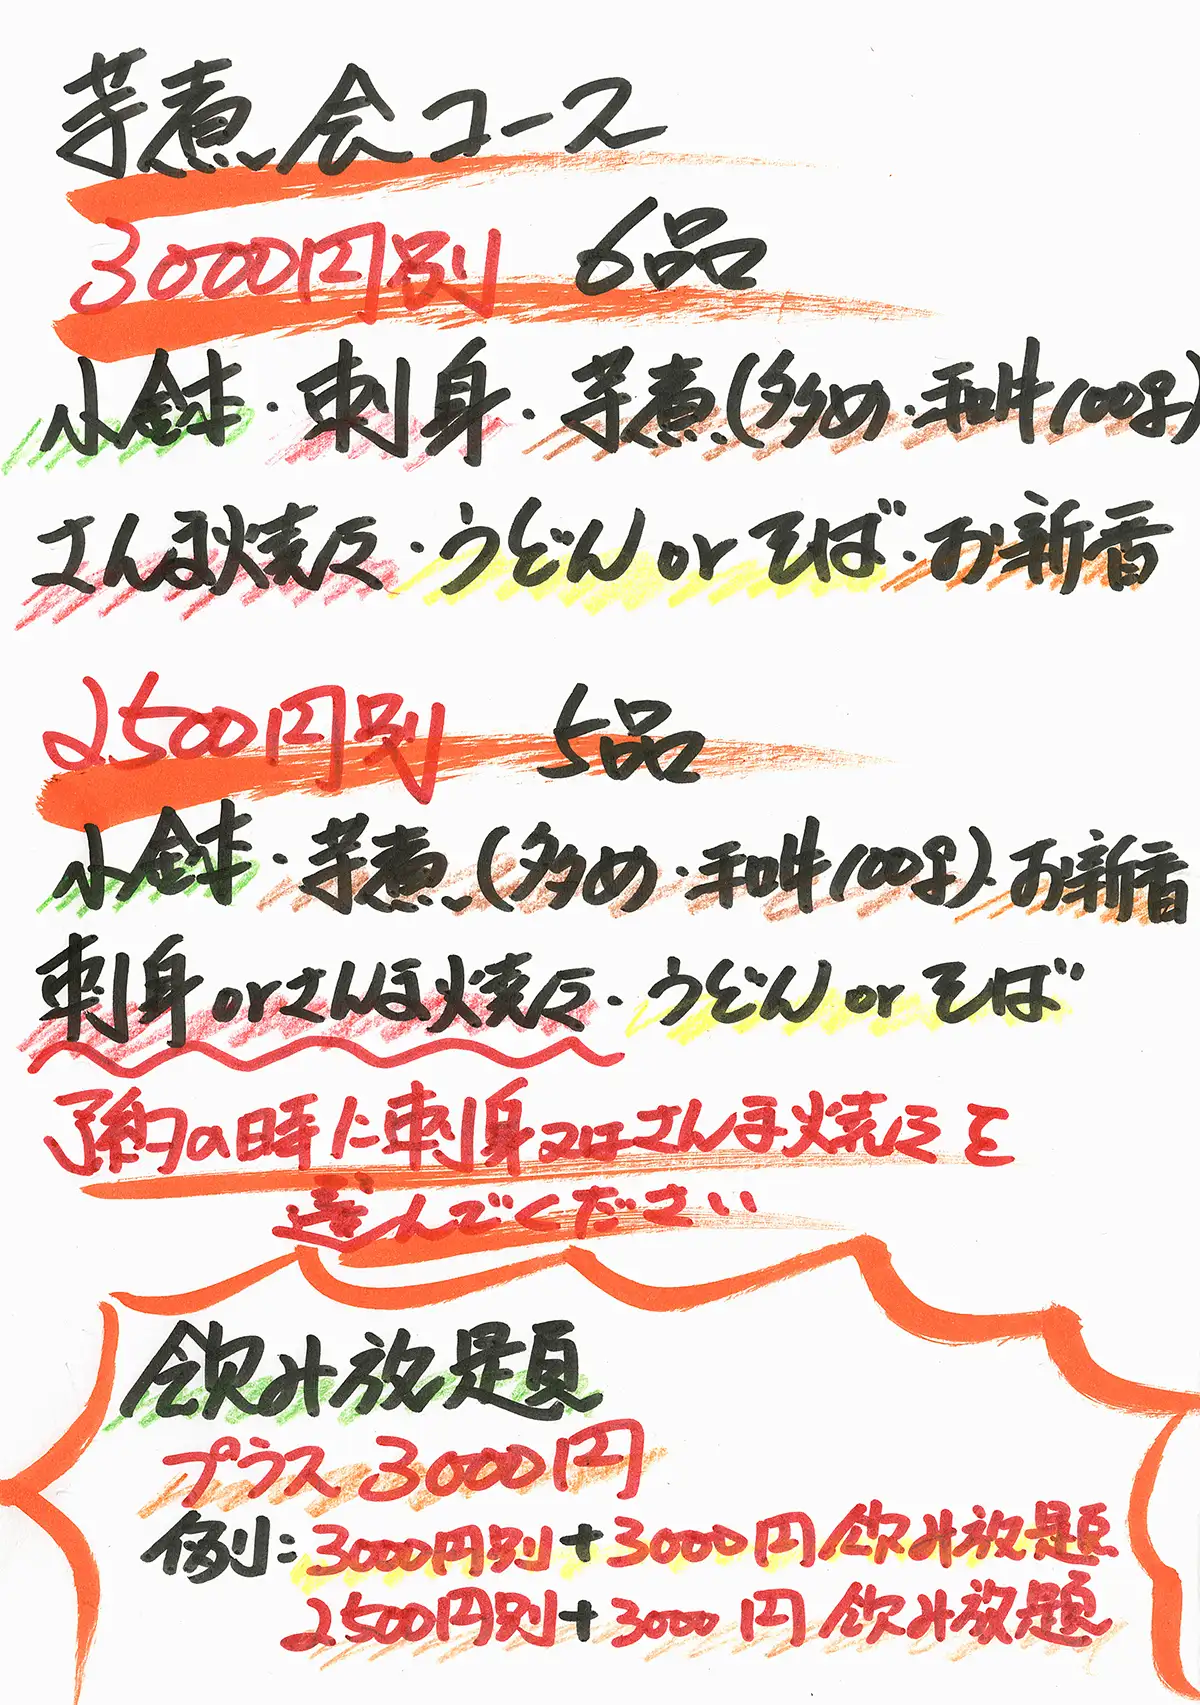 芋煮会コース
3000円別 6品
小鉢・刺身・芋煮(多め・和牛100g)
さんま焼き・うどんorそば・お新香
2500円別 5品
小鉢・芋煮(多め・和牛100g)・お新香
刺身orさんま焼き・うどんorそば
予約の時に刺身又はさんま焼きを
選んでください
飲み放題
プラス3000円
例:3000円別+3000円飲み放題
2500円別+3000円飲み放題